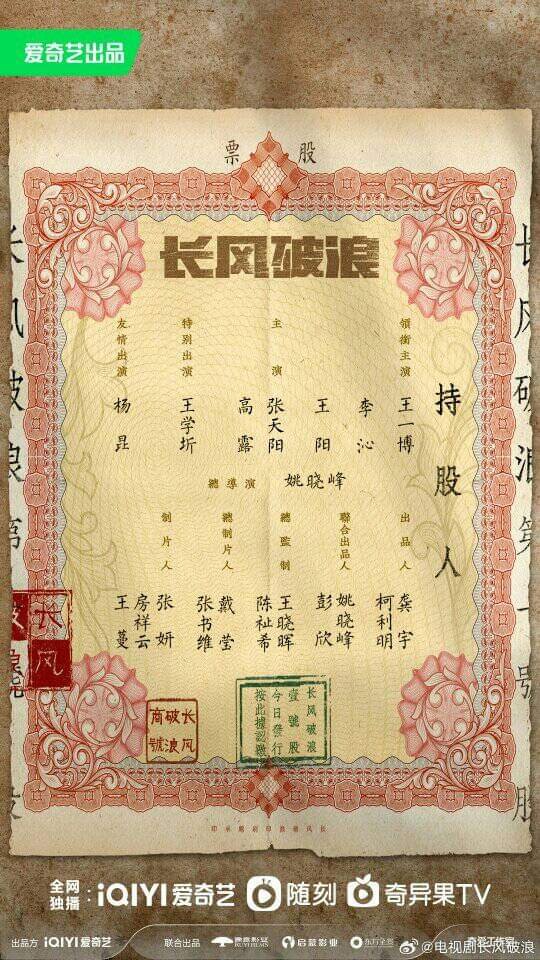 爱奇艺出品
股票
长风破浪
持股人
領銜主演
王一博
李沁
主演
王阳
张天阳
高露
特别出演
王学圻
友情出演
杨昆
總導演
姚晓峰
出品人
龚宇
柯利明
聯合出品人
姚晓峰
彭欣
總監制
王晓晖
陈祉希
總制片人
戴莹
张书维
制片人
张妍
房祥云
王蔓
长风破浪第一號股
长风破浪第
长风
长风破浪商號
长风破浪
壹號股
今日發行
按此據認繳
全网独播:
iQIYI爱奇艺
随刻
奇异果TV
出品方
iQIYI爱奇艺
联合出品
儒意影业
启蒙影业
@电视剧长风破浪